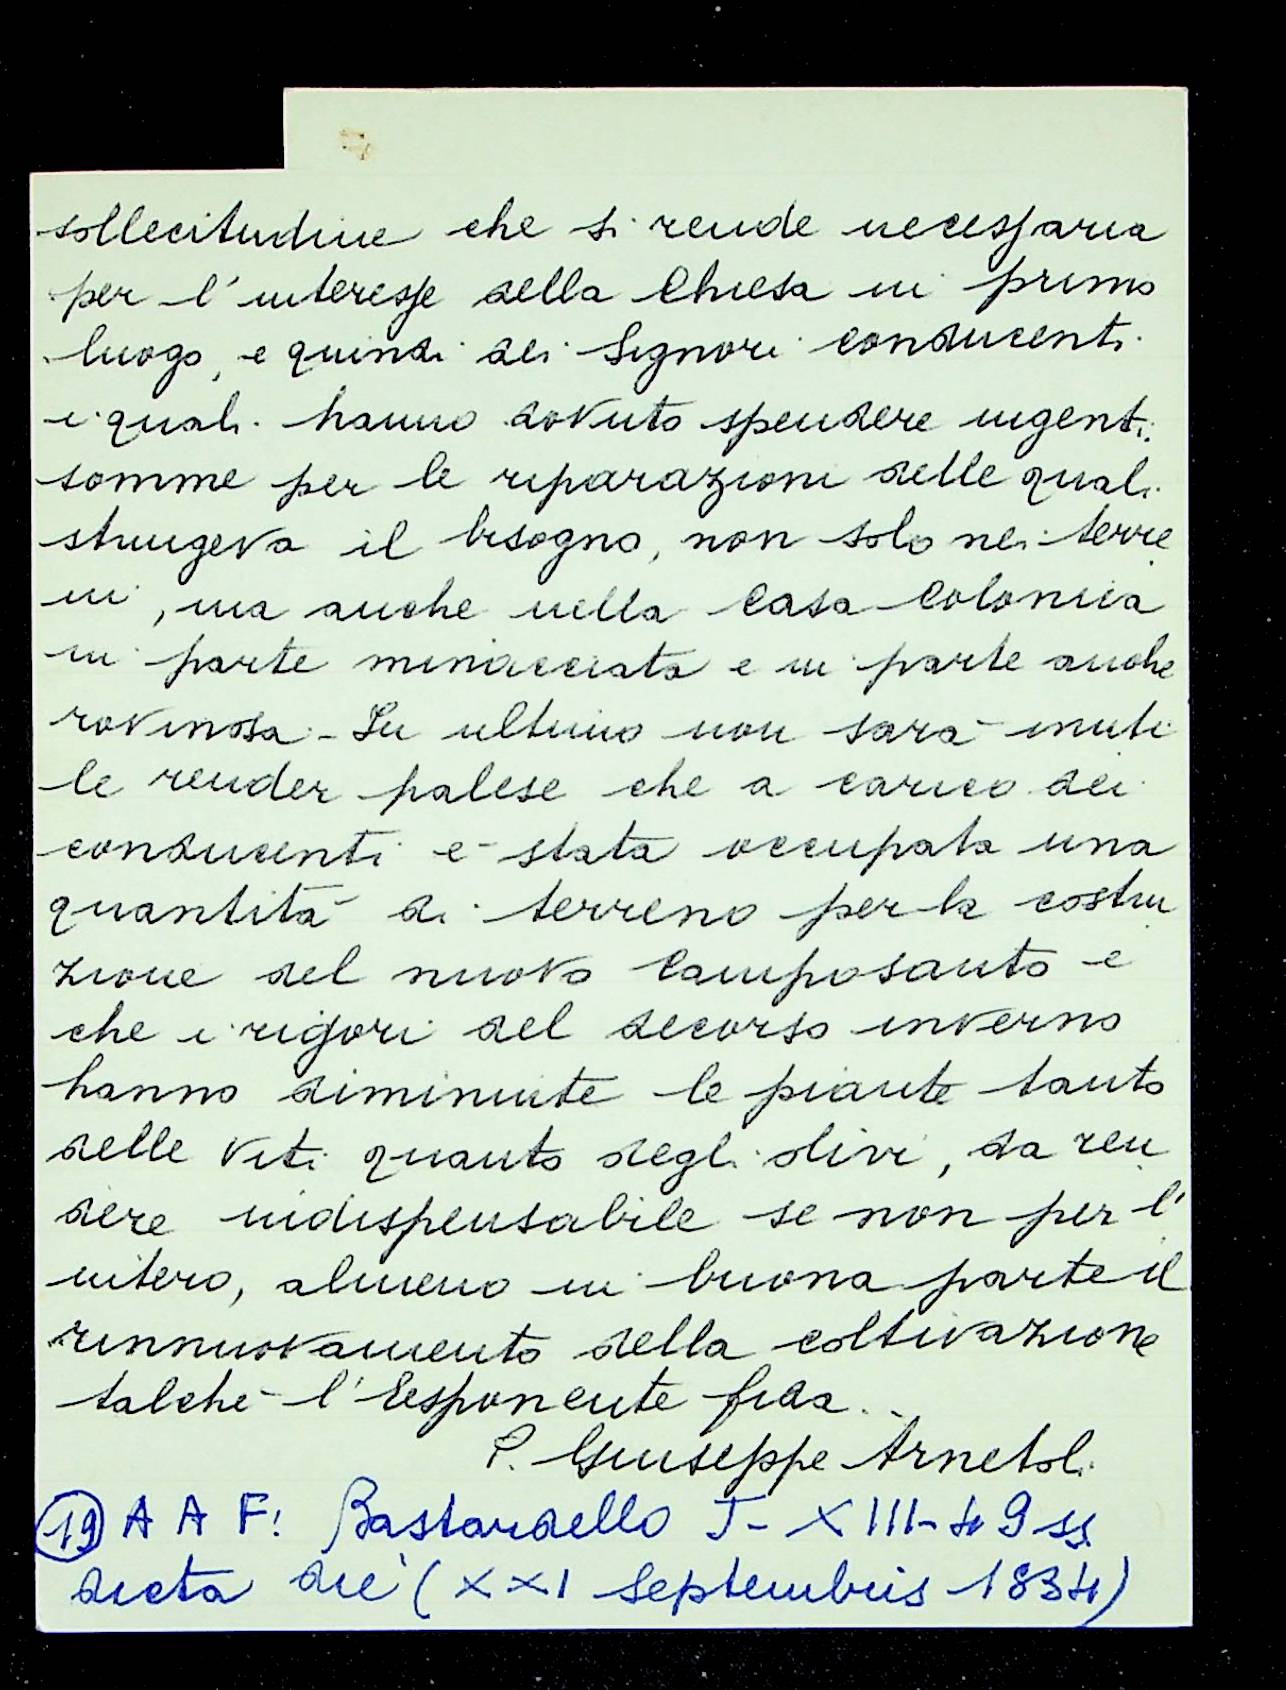 sollecitudine che si rende necessaria
per l'interesse della Chiesa in primo
luogo, e quindi dei Signori conducenti
i quali hanno dovuto spendere ingenti
somme per le riparazioni delle quali
stringeva il bisogno, non solo nei terre
ni, ma anche nella Casa Colonica
in parte minacciata e in parte anche
rovinosa - In ultimo non sarà inuti
le render palese che a carico dei
conducenti è stata occupata una
quantità di terreno per la costru
zione del nuovo Camposanto e
che i rigori del decorso inverno
hanno diminuite le piante tanto
delle viti quanto degli olivi, da ren
dere indispensabile se non per l'
intero, almeno in buona parte il
rinnuovamento della coltivazione
talché l'Esponente fida..
P. Giuseppe Arnetoli
19 A A F: Bastardello J - XIII - 49 ss.
dicta die (XXI Septembris 1834)